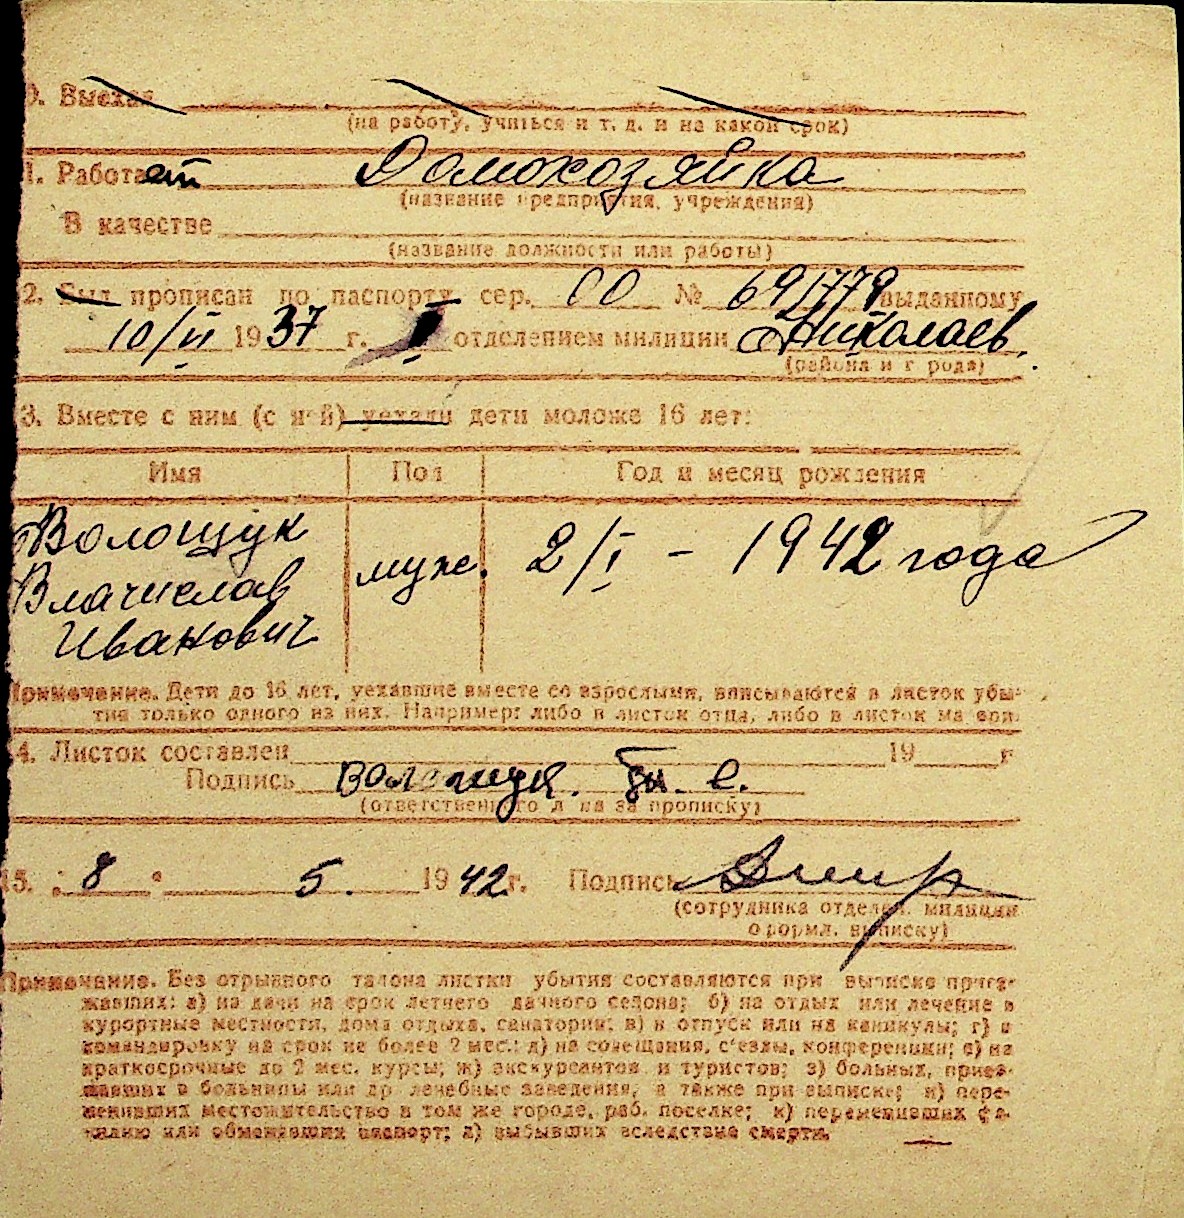 0. Выехал
(на работу, учиться и т. д. и на какой срок)
1. Работает Домохозяйка
(название предприятия, учреждения)
В качестве
(название должности или работы)
2. Был прописан по паспорту сер. СО № 691779 выданному
10/VI 1937 г. I отделением милиции Николаев.
(района и города)
3. Вместе с ним (с ней) уехали дети моложе 16 лет:
Имя Пол Год и месяц рождения
Волощук муж. 2/I - 1942 года
Влачислав
Иванович
Примечание. Дети до 16 лет, уехавшие вместе со взрослыми, вписываются в листок убы-
тия только одного из них. Например: либо в листок отца, либо в листок матери.
4. Листок составлен 19 г
Подпись Волощук.
(ответственного л на за прописку)
15. 8 5. 1942 г. Подпись
(сотрудника отделен. милиции
оформл. выписку)
Примечание. Без отрывного талона листки убытия составляются при выписке приез-
жавших: а) на дачи на срок летнего дачного сезона; б) на отдых или лечение в
курортные местности, дома отдыха, санатории; в) в отпуск или на каникулы; г) в
командировку на срок не более 2 мес.; д) на совещания, с'езды, конференции; е) на
краткосрочные до 2 мес. курсы; ж) экскурсантов и туристов; з) больных, приез-
жавших в больницы или др лечебные заведения, а также при выписке; и) пере-
менивших местожительство в том же городе, раб. поселке; к) переменивших фа-
милию или обменявших паспорт; л) выбывших вследствие смерти.